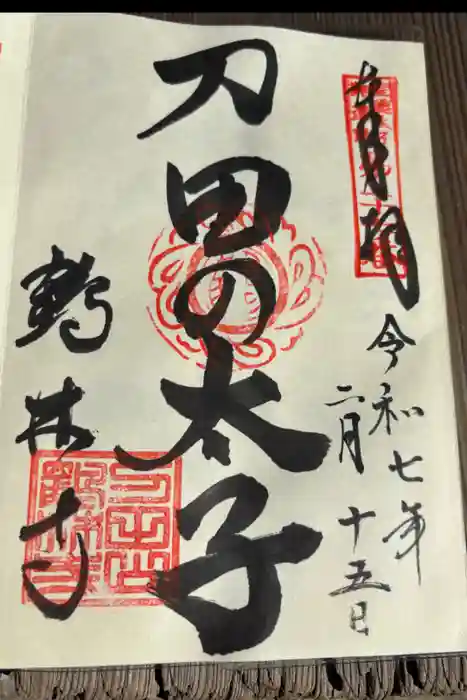 奉拝
令和七年
二月十五日
刀田の太子
鶴林寺